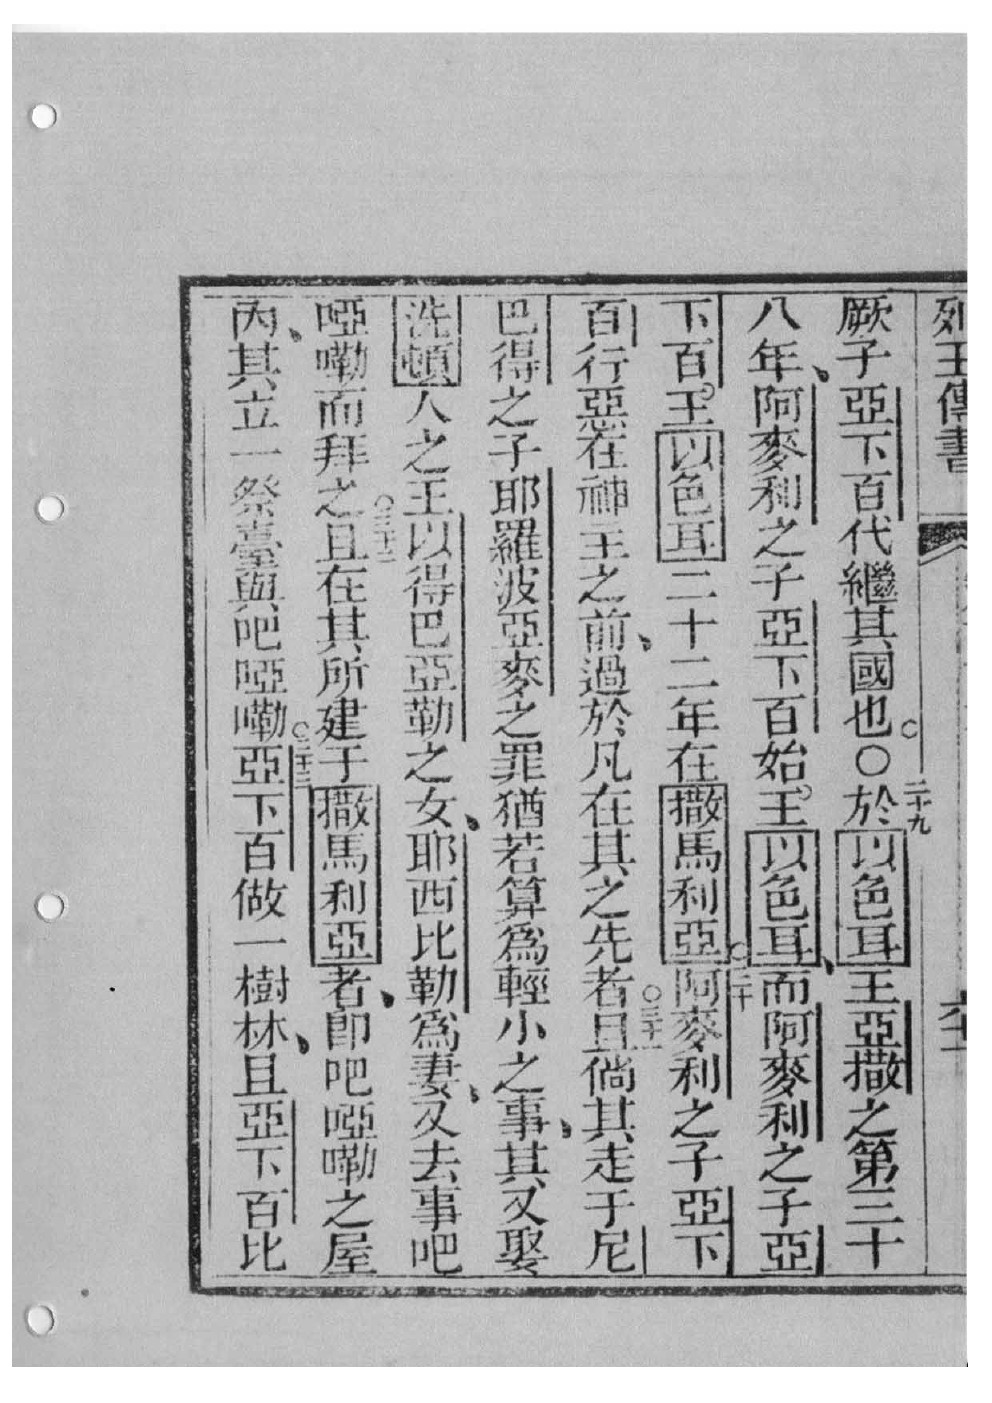 列王傳書
厥子亞下百代繼其國也。○二十九於以色耳王亞撒之第三十
八年、阿麥利之子亞下百始王。以色耳、而阿麥利之子亞
下百。王以色耳二十二年在撒馬利亞。三十阿麥利之子亞下
百行惡在神主之前、過於凡在其之先者。三十一且倘其走于尼
巴得之子耶羅波亞麥之罪猶若算為輕小之事、其又娶
洗頓人之王以得巴亞勒之女、耶西比勒為妻、又去事吧
啞嘞而拜之。三十二且在其所建于撒馬利亞者、即吧啞嘞之屋
內、其立一祭臺與吧啞嘞。三十三亞下百做一樹林、且亞下百比